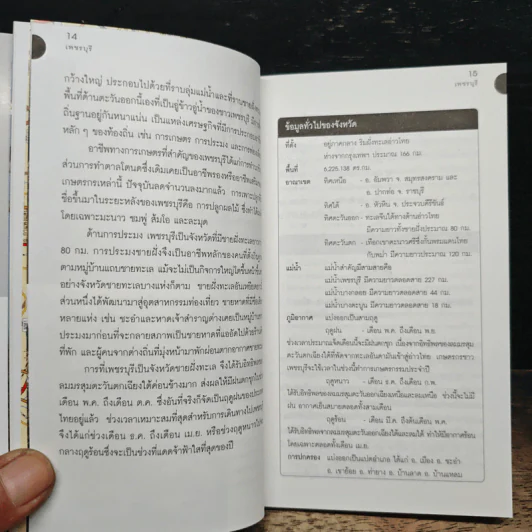 14
เพชรบุรี
กว้างใหญ่ ประกอบไปด้วยที่ราบลุ่มแม่น้ำและที่ราบชายฝั่ง
พื้นที่ด้านตะวันออกนี้เองที่เป็นอู่ข้าวอู่น้ำของชาวเพชรบุรี
ถิ่นฐานอยู่กันหนาแน่น เป็นแหล่งเศรษฐกิจที่มีการประกอบ
หลัก ๆ ของท้องถิ่น เช่น การเกษตร การประมง และการท่องเที่ยว
อาชีพทางการเกษตรที่สำคัญของเพชรบุรีได้แก่การทำนา
ส่วนการทำตาลโตนดซึ่งเดิมเคยเป็นอาชีพรองหรืออาชีพเสริม
เกษตรกรเหล่านี้ ปัจจุบันลดจำนวนลงมากแล้ว การเพาะปลูก
ชื่อขึ้นมาในระยะหลังของเพชรบุรีคือ การปลูกผลไม้
โดยเฉพาะมะนาว ชมพู่ ส้มโอ และละมุด
ด้านการประมง เพชรบุรีเป็นจังหวัดที่มีชายฝั่งทะเลยาว
80 กม. การประมงชายฝั่งจึงเป็นอาชีพหลักของคนที่ตั้งถิ่นฐาน
ตามหมู่บ้านแถบชายทะเล แม้จะไม่เป็นกิจการใหญ่โตขึ้นหน้า
อย่างจังหวัดชายทะเลบางแห่งก็ตาม ชายฝั่งทะเลอันทอดยาว
ส่วนหนึ่งได้พัฒนามาสู่อุตสาหกรรมท่องเที่ยว ชายหาดที่มีชื่อ
หลายแห่ง เช่น ชะอำและหาดเจ้าสำราญต่างเคยเป็นหมู่บ้าน
ประมงมาก่อนที่จะกลายสภาพเป็นชายหาดที่แออัดไปด้วยร้านค้า
ที่พัก และผู้คนจากต่างถิ่นที่มุ่งหน้ามาพักผ่อนตากอากาศชายทะเล
การที่เพชรบุรีเป็นจังหวัดชายฝั่งทะเล จึงได้รับอิทธิพล
ลมมรสุมตะวันตกเฉียงใต้ค่อนข้างมาก ส่งผลให้มีฝนตกชุก
พ.ค. ถึงเดือน ต.ค. ซึ่งอันที่จริงก็จัดเป็นฤดูฝนของประเทศ
ไทยอยู่แล้ว ช่วงเวลาเหมาะสมที่สุดสำหรับการเดินทางไปเพชรบุรี
จึงได้แก่ช่วงเดือน ธ.ค. ถึงเดือน เม.ย. หรือช่วงฤดูหนาวไปจนถึง
กลางฤดูร้อนซึ่งจะเป็นช่วงที่แดดจ้าฟ้าใสที่สุดของปี
15
เพชรบุรี
ข้อมูลทั่วไปของจังหวัด
ที่ตั้ง อยู่ภาคกลาง ริมฝั่งทะเลอ่าวไทย
ห่างจากกรุงเทพฯ ประมาณ 166 กม.
พื้นที่ 6,225.138 ตร.กม.
อาณาเขต ทิศเหนือ - อ. อัมพวา จ. สมุทรสงคราม และ
อ. ปากท่อ จ. ราชบุรี
ทิศใต้ - อ. หัวหิน จ. ประจวบคีรีขันธ์
ทิศตะวันออก - ทะเลจีนใต้ทางด้านอ่าวไทย
มีความยาวทั้งชายฝั่งประมาณ 80 กม.
ทิศตะวันตก - เทือกเขาตะนาวศรีซึ่งกั้นพรมแดนไทย
กับพม่า มีความยาวประมาณ 120 กม.
แม่น้ำ แม่น้ำสำคัญมีสามสายคือ
แม่น้ำเพชรบุรี มีความยาวตลอดสาย 227 กม.
แม่น้ำบางกลอย มีความยาวตลอดสาย 44 กม.
แม่น้ำบางตะบูน มีความยาวตลอดสาย 18 กม.
ภูมิอากาศ แบ่งออกเป็นสามฤดู
ฤดูฝน - เดือน พ.ค. ถึงเดือน พ.ย.
ช่วงเวลาประมาณเจ็ดเดือนนี้จะมีฝนตกชุก เนื่องจากได้รับอิทธิพลของลมมรสุม
ตะวันตกเฉียงใต้ที่พัดจากทะเลอันดามันเข้าสู่อ่าวไทย เกษตรกรชาว
เพชรบุรีจะใช้เวลาในช่วงนี้ทำการเกษตรกรรมประจำปี
ฤดูหนาว - เดือน ธ.ค. ถึงเดือน ก.พ.
ได้รับอิทธิพลจากลมมรสุมตะวันออกเฉียงเหนือและลมเหนือ ช่วงนี้จะไม่มี
ฝน อากาศเย็นสบายตลอดทั้งสามเดือน
ฤดูร้อน - เดือน มี.ค. ถึงต้นเดือน พ.ค.
ได้รับอิทธิพลจากลมมรสุมตะวันออกเฉียงใต้และลมใต้ ทำให้มีอากาศร้อน
โดยเฉพาะตลอดทั้งเดือน เม.ย.
การปกครอง แบ่งออกเป็นแปดอำเภอ ได้แก่ อ. เมือง อ. ชะอำ
อ. เขาย้อย อ. ท่ายาง อ. บ้านลาด อ. บ้านแหลม